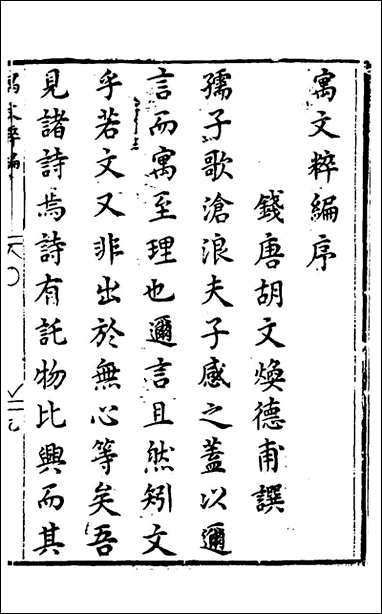 寓文粹編序
錢唐胡文煥德甫譔
孺子歌滄浪夫子感之蓋以邇
言而寓至理也邇言且然矧文
乎若文又非出於無心等矣吾
見諸詩焉詩有託物比興而其